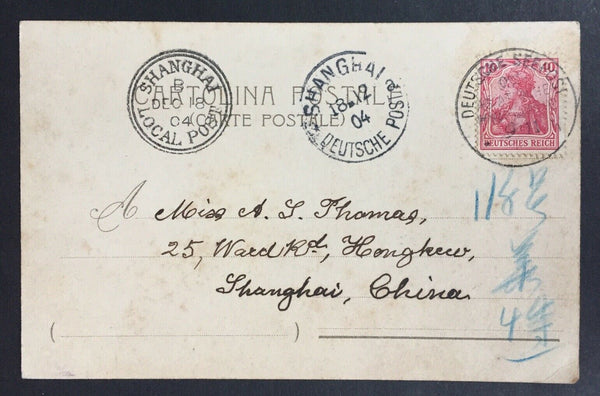 SHANGHAI
B
DEC 18
04
LOCAL POST
SHANGHAI
18 12
04
DEUTSCHE POST
DEUTSCHE SEEPOST
10
DEUTSCHES REICH
CARTOLINA POSTALE
(CARTE POSTALE)
A Miss A. L. Thomas,
25, Ward Rd, Hongkew,
Shanghai, China
118号